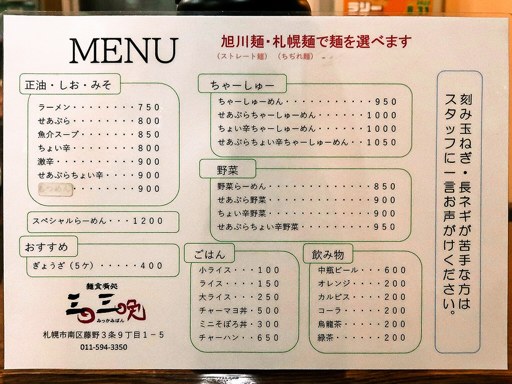 MENU
旭川麺・札幌麺で麺を選べます
(ストレート麺) (ちぢれ麺)
正油・しお・みそ
ラーメン・・・・・・・・750
せあぶら・・・・・・・・800
魚介スープ・・・・・・・850
ちょい辛・・・・・・・・800
激辛・・・・・・・・・・900
せあぶらちょい辛・・・・900
・・・・・・・900
スペシャルらーめん・・・1200
おすすめ
ぎょうざ(5ケ)・・・・・400
麺食堂処
三日三晩
みっかみばん
札幌市南区藤野3条9丁目1-5
011-594-3350
ちゃーしゅー
ちゃーしゅーめん・・・・・・・・・950
せあぶらちゃーしゅーめん・・・・・1000
ちょい辛ちゃーしゅーめん・・・・・1000
せあぶらちょい辛ちゃーしゅーめん・・1050
野菜
野菜らーめん・・・・・・・・・・・850
せあぶら野菜・・・・・・・・・・・900
ちょい辛野菜・・・・・・・・・・・900
せあぶらちょい辛野菜・・・・・・・950
ごはん
小ライス・・・100
ライス・・・・150
大ライス・・・250
チャーマヨ丼・500
ミニそぼろ丼・300
チャーハン・・650
飲み物
中瓶ビール・・・・600
オレンジ・・・・・200
カルピス・・・・・200
コーラ・・・・・・200
烏龍茶・・・・・・200
緑茶・・・・・・・200
刻み玉ねぎ・長ネギが苦手な方は
スタッフに一言お声がけください。